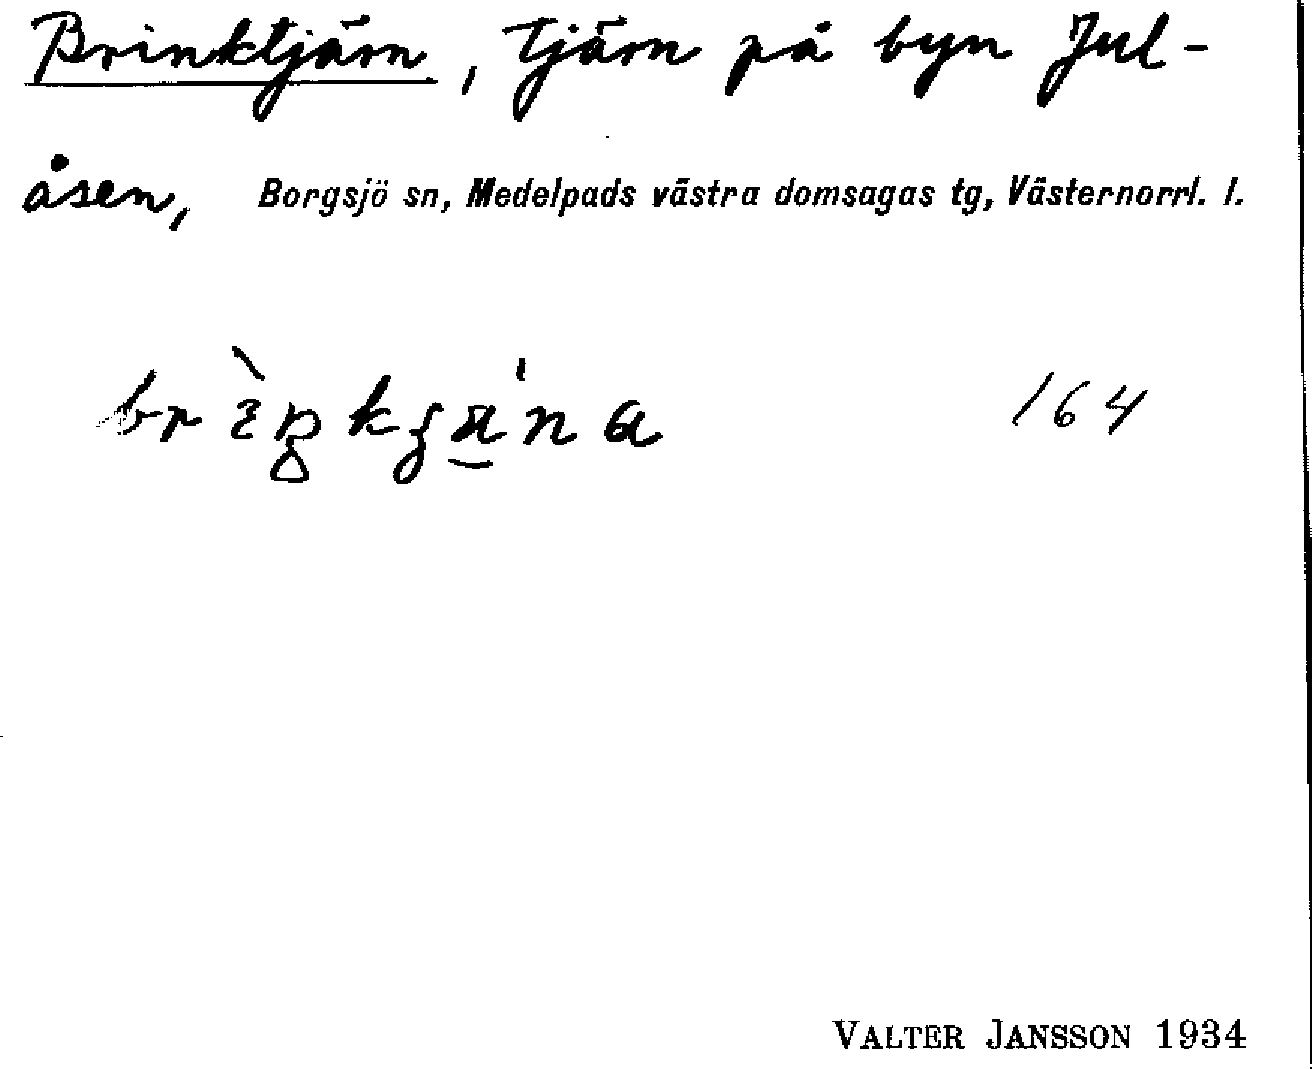 Brinktjärn, tjärn på byn Jul-
åsen, Borgsjö sn, Medelpads västra domsagas tg, Västernorrl. l.
164
VALTER JANSSON 1934